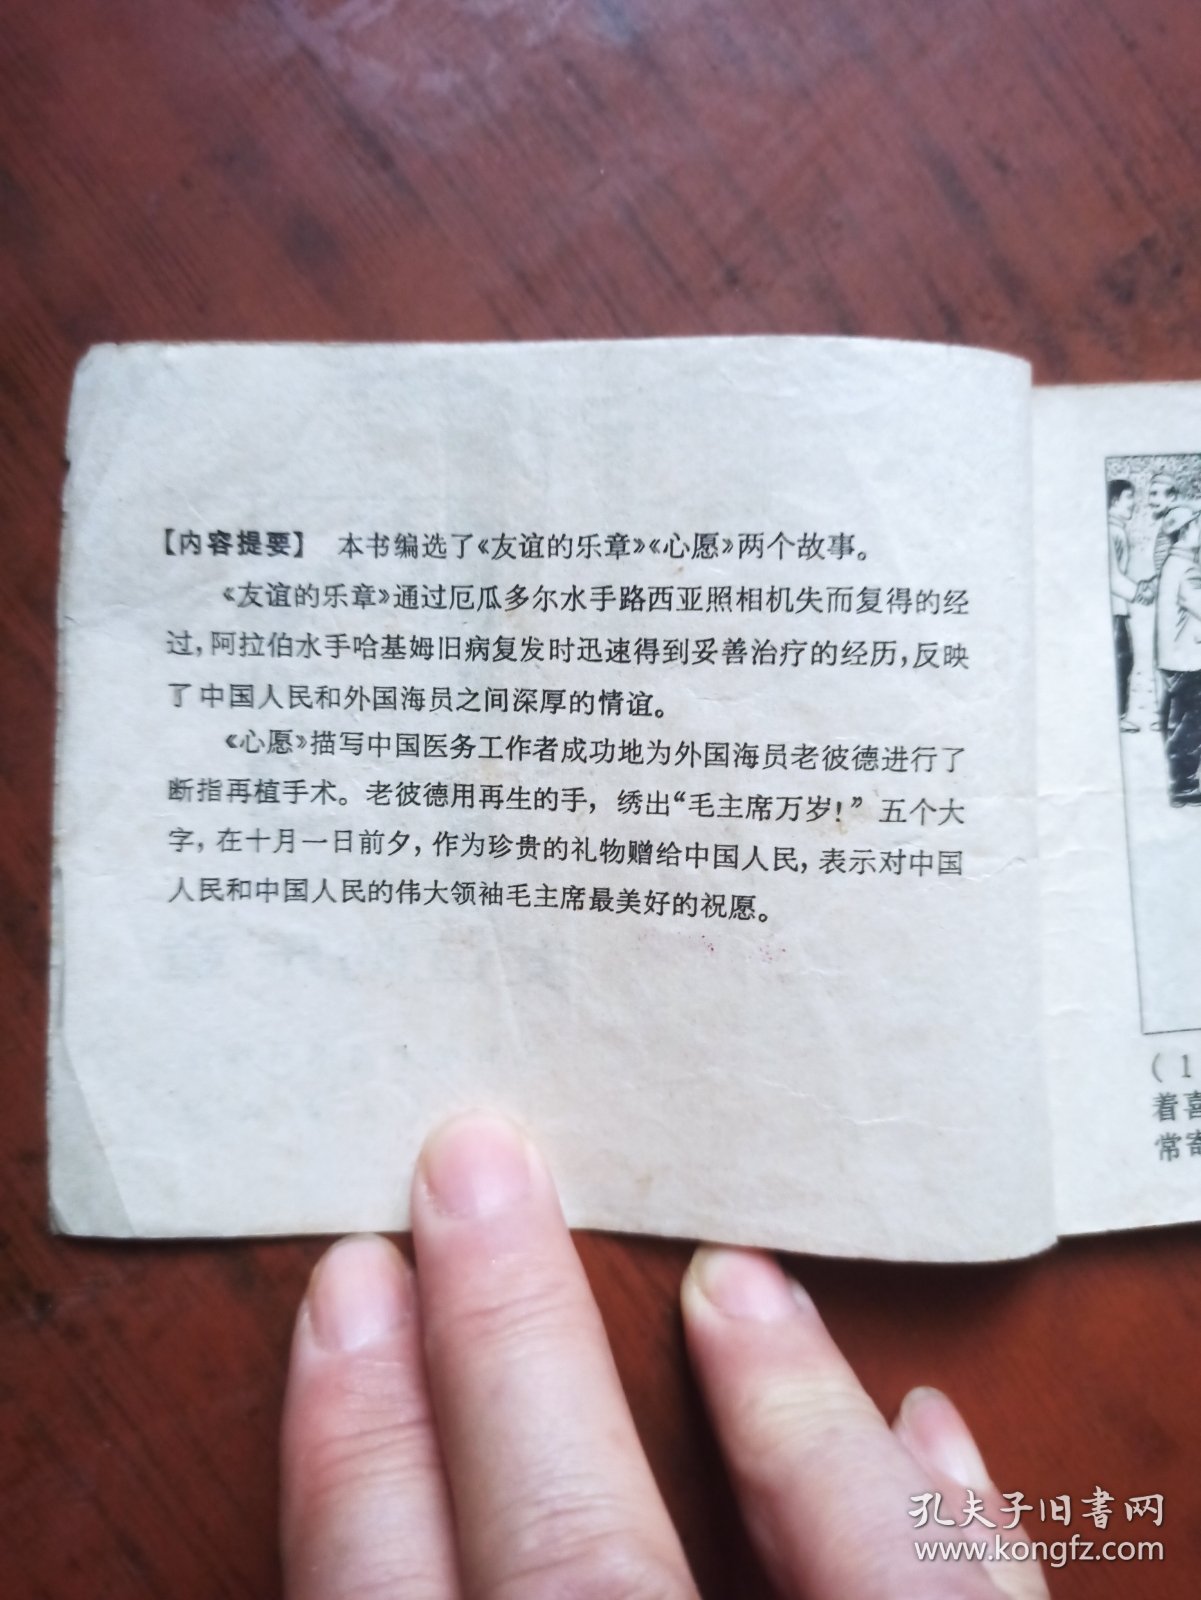 【内容提要】 本书编选了《友谊的乐章》《心愿》两个故事。
《友谊的乐章》通过厄瓜多尔水手路西亚照相机失而复得的经
过，阿拉伯水手哈基姆旧病复发时迅速得到妥善治疗的经历，反映
了中国人民和外国海员之间深厚的情谊。
《心愿》描写中国医务工作者成功地为外国海员老彼德进行了
断指再植手术。老彼德用再生的手，绣出“毛主席万岁！”五个大
字，在十月一日前夕，作为珍贵的礼物赠给中国人民，表示对中国
人民和中国人民的伟大领袖毛主席最美好的祝愿。
（1
着喜
常寄
孔夫子旧书网
www.kongfz.com